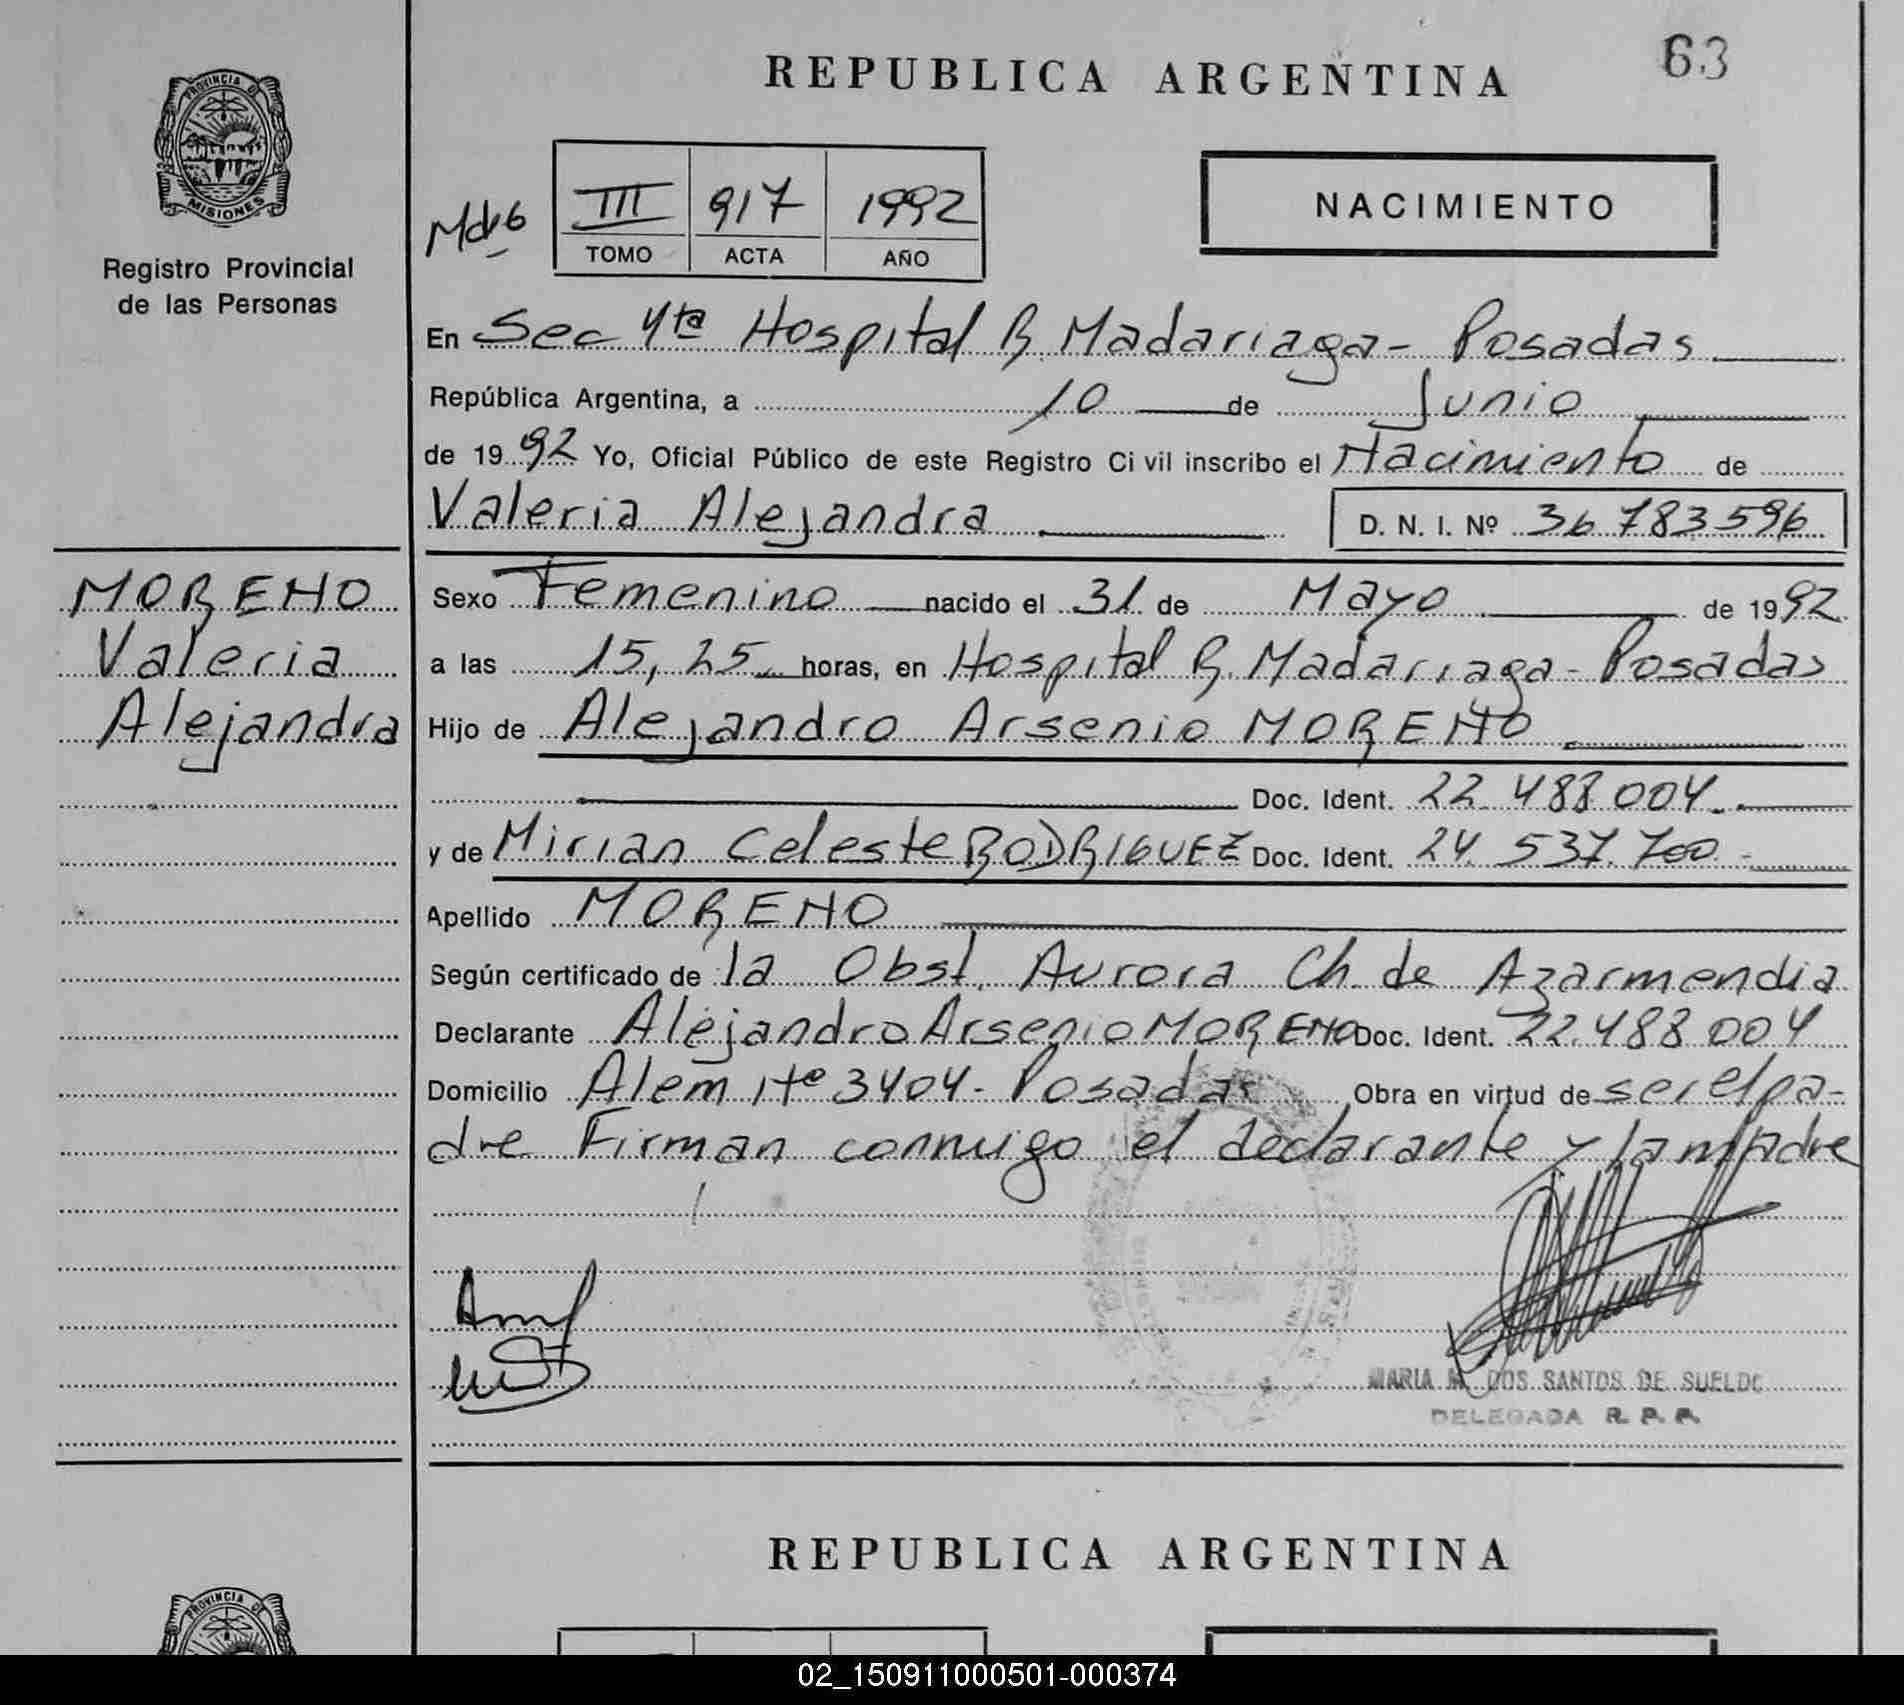 63
REPUBLICA ARGENTINA
PROVINCIA DE
MISIONES
Registro Provincial
de las Personas
III 917 1992
TOMO ACTA AÑO
NACIMIENTO
En Sec 4ta Hospital R. Madariaga - Posadas
República Argentina, a 10 de Junio
de 1992 Yo, Oficial Público de este Registro Civil inscribo el Nacimiento de
Valeria Alejandra D. N. I. Nº 36 783 596
MORENO
Valeria
Alejandra
Sexo Femenino nacido el 31 de Mayo de 1992
a las 15,25 horas, en Hospital R. Madariaga - Posadas
Hijo de Alejandro Arsenio MORENO
Doc. Ident. 22 488 004
y de Mirian Celeste RODRIGUEZ Doc. Ident. 24. 537. 700
Apellido MORENO
Según certificado de la Obst. Aurora Ch. de Azarmendia
Declarante Alejandro Arsenio MORENO Doc. Ident. 22.488 004
Domicilio Alem Nº 3404 - Posadas Obra en virtud de ser el pa-
dre Firman conmigo el declarante y la madre
MARIA M. DOS SANTOS DE SUELDO
DELEGADA R. P. P.
REPUBLICA ARGENTINA
PROVINCIA DE
02_150911000501-000374